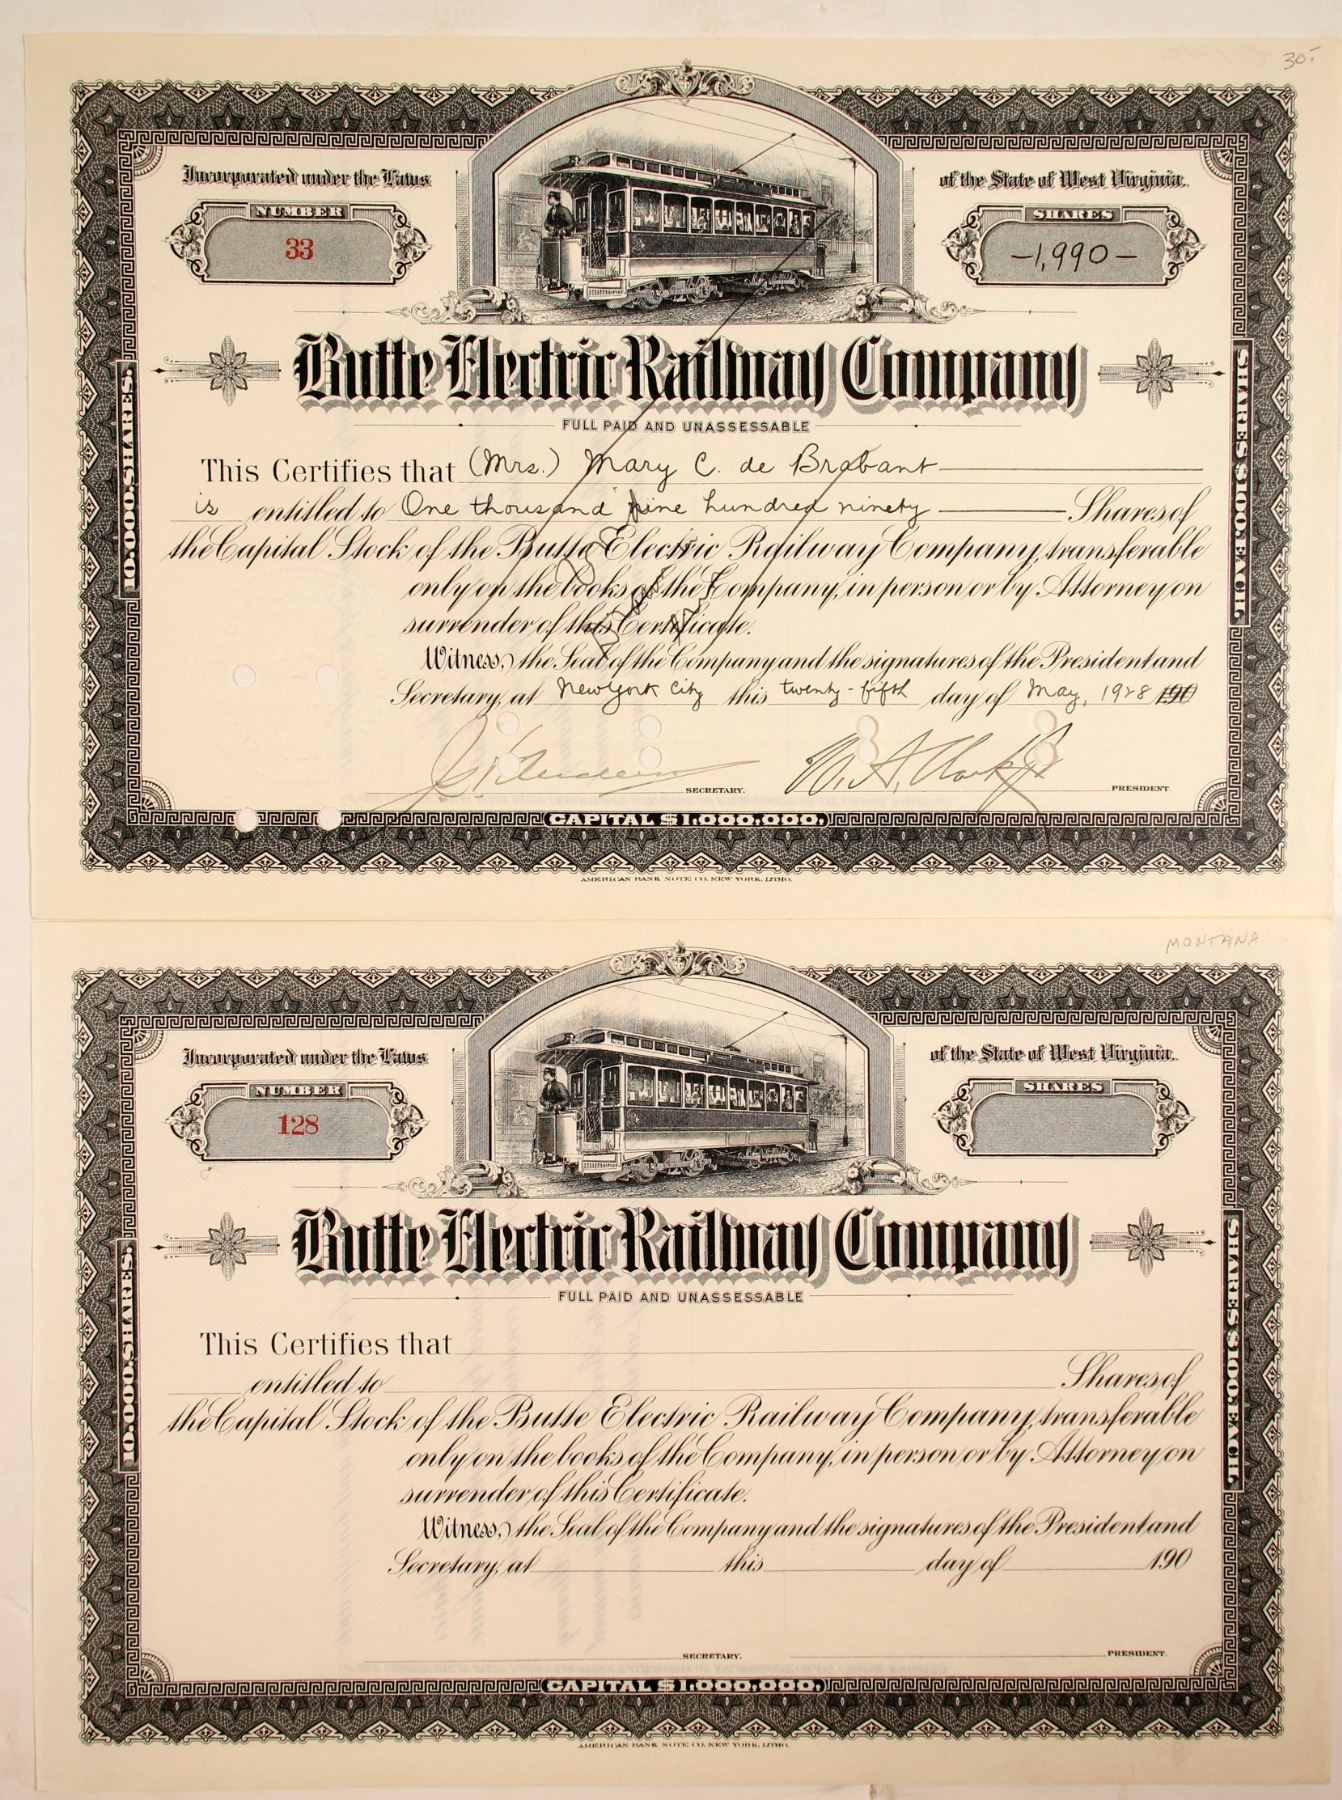 30.-
Incorporated under the Laws of the State of West Virginia.
NUMBER SHARES
33 -1,990-
Butte Electric Railway Company
FULL PAID AND UNASSESSABLE
10,000 SHARES.
SHARES $100 EACH.
This Certifies that (Mrs.) Mary C. de Brabant
is entitled to One thousand nine hundred ninety Shares of
the Capital Stock of the Butte Electric Railway Company, transferable
only on the books of the Company, in person or by Attorney on
surrender of this Certificate.
Witness, the Seal of the Company and the signatures of the President and
Secretary, at New York City this twenty-fifth day of May, 1928 190
W. A. Clark Jr
SECRETARY. PRESIDENT
CAPITAL $1,000,000.
AMERICAN BANK NOTE CO. NEW YORK, LITHO.
MONTANA
Incorporated under the Laws of the State of West Virginia.
NUMBER SHARES
128
Butte Electric Railway Company
FULL PAID AND UNASSESSABLE
10,000 SHARES.
SHARES $100 EACH.
This Certifies that
entitled to Shares of
the Capital Stock of the Butte Electric Railway Company, transferable
only on the books of the Company, in person or by Attorney on
surrender of this Certificate.
Witness, the Seal of the Company and the signatures of the President and
Secretary, at this day of 190
SECRETARY. PRESIDENT
CAPITAL $1,000,000.
AMERICAN BANK NOTE CO. NEW YORK, LITHO.